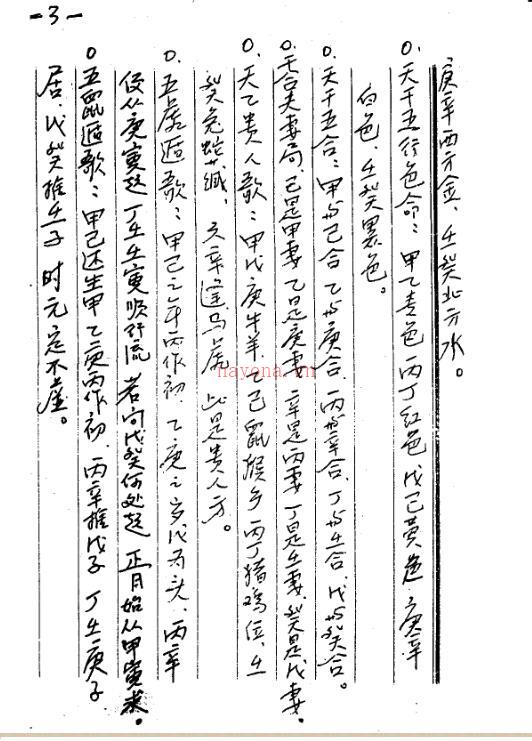 -3-
庚辛西方金、壬癸北方水。
0、天干五行色命：甲乙青色 丙丁红色 戊己黄色、庚辛
白色、壬癸黑色。
0、天干五合：甲与己合 乙与庚合、丙与辛合、丁与壬合、戊与癸合。
0、天合夫妻局、己是甲妻 乙是庚妻 辛是丙妻 丁是壬妻、癸是戊妻。
0、天乙贵人歌：甲戊庚牛羊、乙己鼠猴乡 丙丁猪鸡位、壬
癸兔蛇藏、六辛逢马虎 此是贵人方。
0、五虎遁歌：甲己之年丙作初、乙庚之岁戊为头、丙辛
便从庚寅起 丁壬壬寅顺行流 若问戊癸何处起 正月始从甲寅求。
0 五鼠遁歌：甲己还生甲 乙庚丙作初、丙辛推戊子 丁壬庚子
居、戊癸推壬子 时元定不虚。
hayona.cn